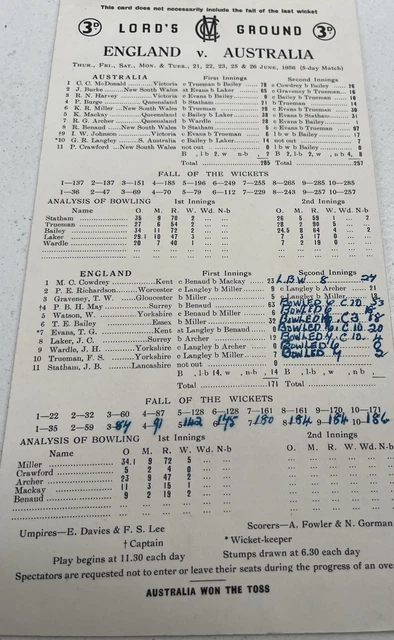 This card does not necessarily include the fall of the last wicket
3D. LORD'S MCC GROUND 3D.
ENGLAND v. AUSTRALIA
THUR., FRI., SAT., MON. & TUES., 21, 22, 23, 25 & 26 JUNE, 1956 (5-day Match)
AUSTRALIA First Innings Second Innings
1 C. C. McDonald Victoria c Trueman b Bailey 78 c Cowdrey b Bailey 26
2 J. Burke New South Wales st Evans b Laker 65 c Graveney b Trueman 16
3 R. N. Harvey Victoria c Evans b Bailey 0 c Bailey b Trueman 10
4 P. Burge Queensland b Statham 21 b Trueman 14
6 K. R. Miller New South Wales b Trueman 28 c Evans b Trueman 30
5 K. Mackay Queensland c Bailey b Laker 38 c Evans b Statham 31
7 R. G. Archer Queensland b Wardle 28 c Evans b Bailey 1
8 R. Benaud New South Wales b Statham 5 c Evans b Trueman 97
†9 I. W. Johnson Victoria c Evans b Trueman 6 l b w b Bailey 17
*10 G. R. Langley S. Australia c Bailey b Laker 14 not out 7
11 P. Crawford New South Wales not out 0 l b w b Bailey 0
Total 285 Total 257
FALL OF THE WICKETS
1—137 2—137 3—151 4—185 5—196 6—249 7—255 8—265 9—285 10—285
1—36 2—47 3—69 4—70 5—79 6—112 7—229 8—243 9—257 10—257
ANALYSIS OF BOWLING 1st Innings 2nd Innings
Name O. M. R. W. Wd. N-b O. M. R. W. Wd. N-b
Statham 35 9 70 2 26 5 59 1 2
Trueman 28 2 90 5
Bailey 34 11 72 2 24.5 8 64 4 2
Laker 29.1 10 47 3 7 3 17 0
Wardle 20 7 40 1 7 2 19 0
ENGLAND First Innings Second Innings
1 M. C. Cowdrey Kent c Benaud b Mackay 23 LBW 8 27
2 P. E. Richardson Worcester c Langley b Miller 9 c Langley b Archer 21
3 Graveney, T. W. Gloucester b Miller 5 c Langley b Miller 18
†4 P. B. H. May Surrey b Benaud 63
5 Watson, W. Yorkshire c Benaud b Miller 6
6 T. E. Bailey Essex b Miller 32
*7 Evans, T. G. Kent st Langley b Benaud 0
8 Laker, J. C. Surrey b Archer 12
9 Wardle, J. H. Yorkshire c Langley b Archer 0
10 Trueman, F. S. Yorkshire c Langley b Miller 7
11 Statham, J. B. Lancashire not out 0
B , l-b 14, w , n-b , 14
Total 171 Total
FALL OF THE WICKETS
1—22 2—32 3—60 4—87 5—128 6—128 7—161 8—161 9—170 10—171
1—35 2—59 3—84 4—91 5—142 6—145 7—180 8—184 9—184 10—186
ANALYSIS OF BOWLING 1st Innings 2nd Innings
Name O. M. R. W. Wd. N-b O. M. R. W. Wd. N-b
Miller 34.1 9 72 5
Crawford 5 2 4 0
Archer 23 9 47 2
Mackay 11 3 15 1
Benaud 9 2 19 2
Umpires—E. Davies & F. S. Lee Scorers—A. Fowler & N. Gorman
† Captain * Wicket-keeper
Play begins at 11.30 each day Stumps drawn at 6.30 each day
Spectators are requested not to enter or leave their seats during the progress of an ove
AUSTRALIA WON THE TOSS